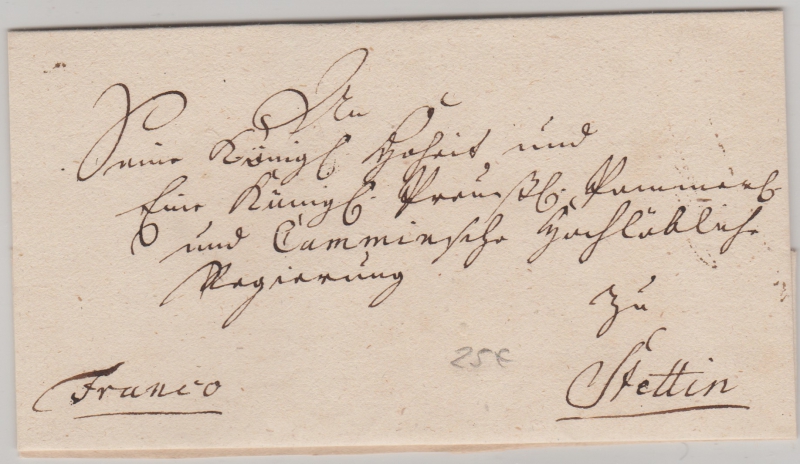 An
Seine Königl Hoheit und
Eine Königl. Preußl. Pommersch.
und Camminsche Hochlöbliche
Regierung
zu
Stettin
Franco
25€